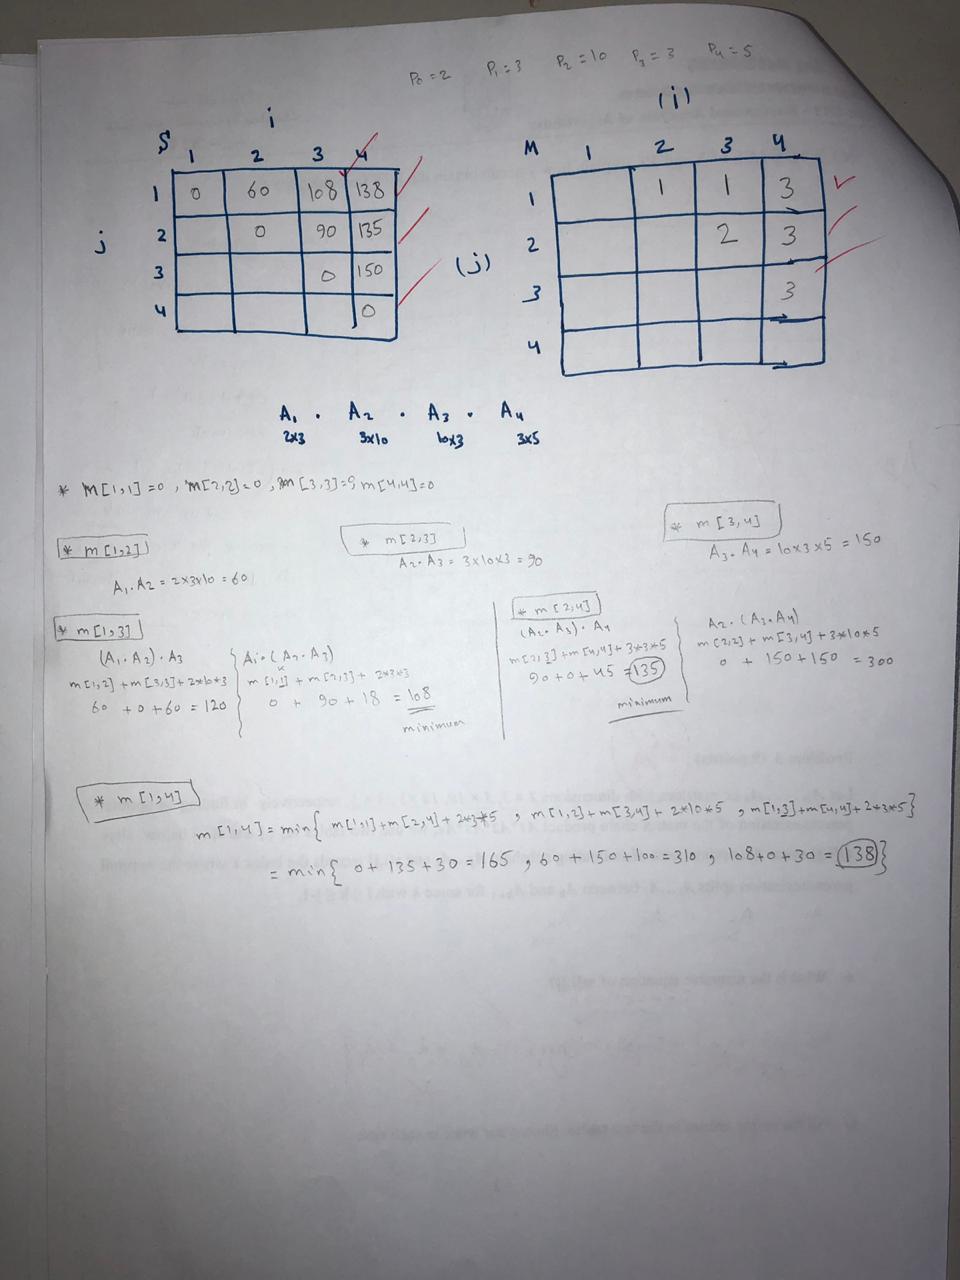 P₀=2 P₁=3 P₂=10 P₃=3 P₄=5
S i
1 2 3 4
1 0 60 108 138
j 2 0 90 135
3 0 150
4 0
(i)
M 1 2 3 4
1 1 1 3
(j) 2 2 3
3 3
4
A₁ . A₂ . A₃ . A₄
2x3 3x10 10x3 3x5
* m[1,1]=0, m[2,2]=0, m[3,3]=0, m[4,4]=0
* m[1,2]
A₁.A₂ = 2x3x10 = 60
* m[2,3]
A₂.A₃ = 3x10x3 = 90
* m[3,4]
A₃.A₄ = 10x3x5 = 150
* m[1,3]
(A₁.A₂).A₃
m[1,2]+m[3,3]+2*10*3
60 +0+60 = 120
A₁.(A₂.A₃)
m[1,1]+m[2,3]+2*3*3
0 + 90+18 = 108
minimum
* m[2,4]
(A₂.A₃).A₄
m[2,3]+m[4,4]+3*3*5
90+0+45=135
minimum
A₂.(A₃.A₄)
m[2,2]+m[3,4]+3*10*5
0 +150+150 =300
* m[1,4]
m[1,4]=min{ m[1,1]+m[2,4]+2*3*5 , m[1,2]+m[3,4]+2*10*5 , m[1,3]+m[4,4]+2*3*5}
= min{ 0+135+30=165 , 60+150+100=310 , 108+0+30=138}